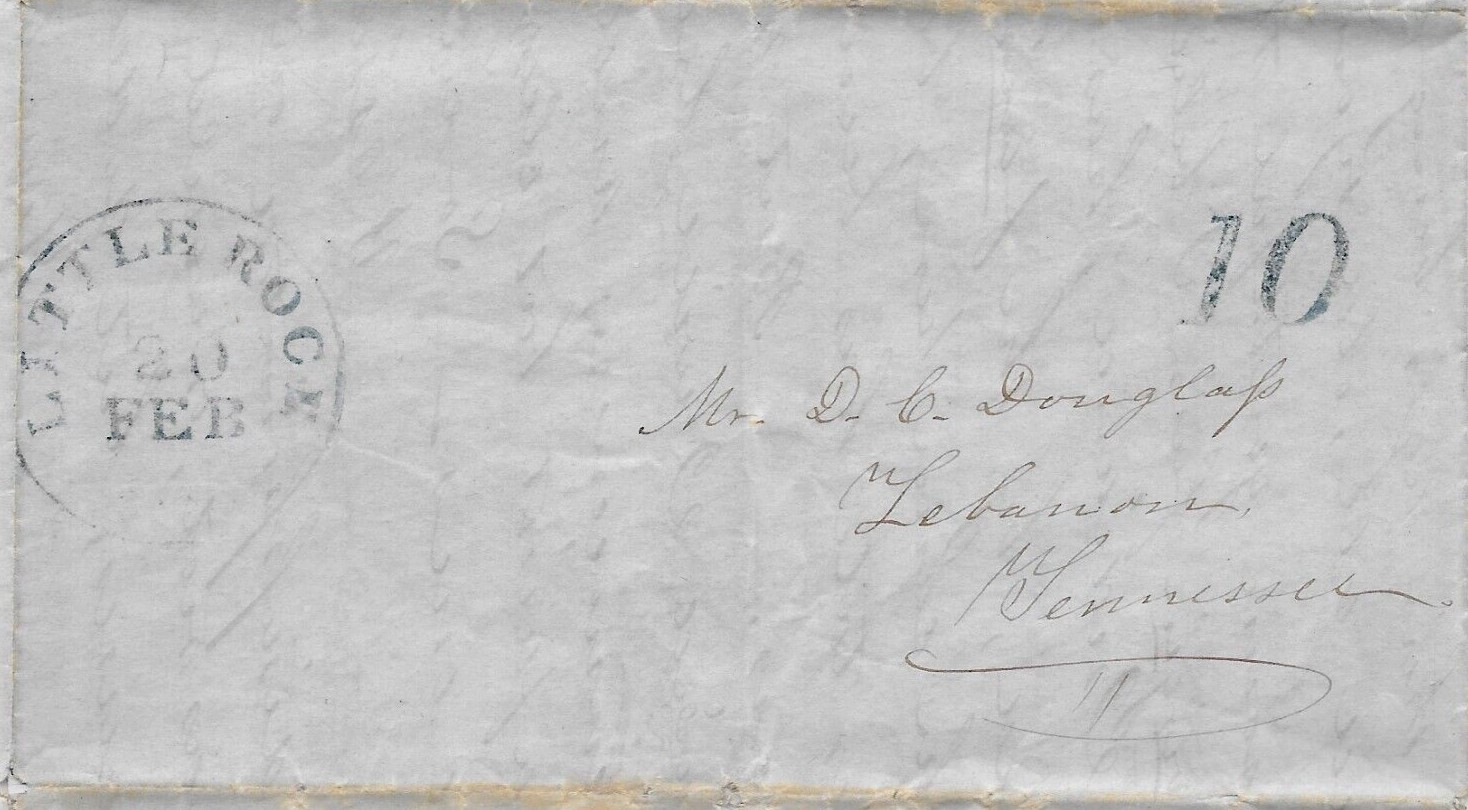 LITTLE ROCK
20
FEB
10
Mr. D. C. Douglaſs
Lebanon,
Tennessee.